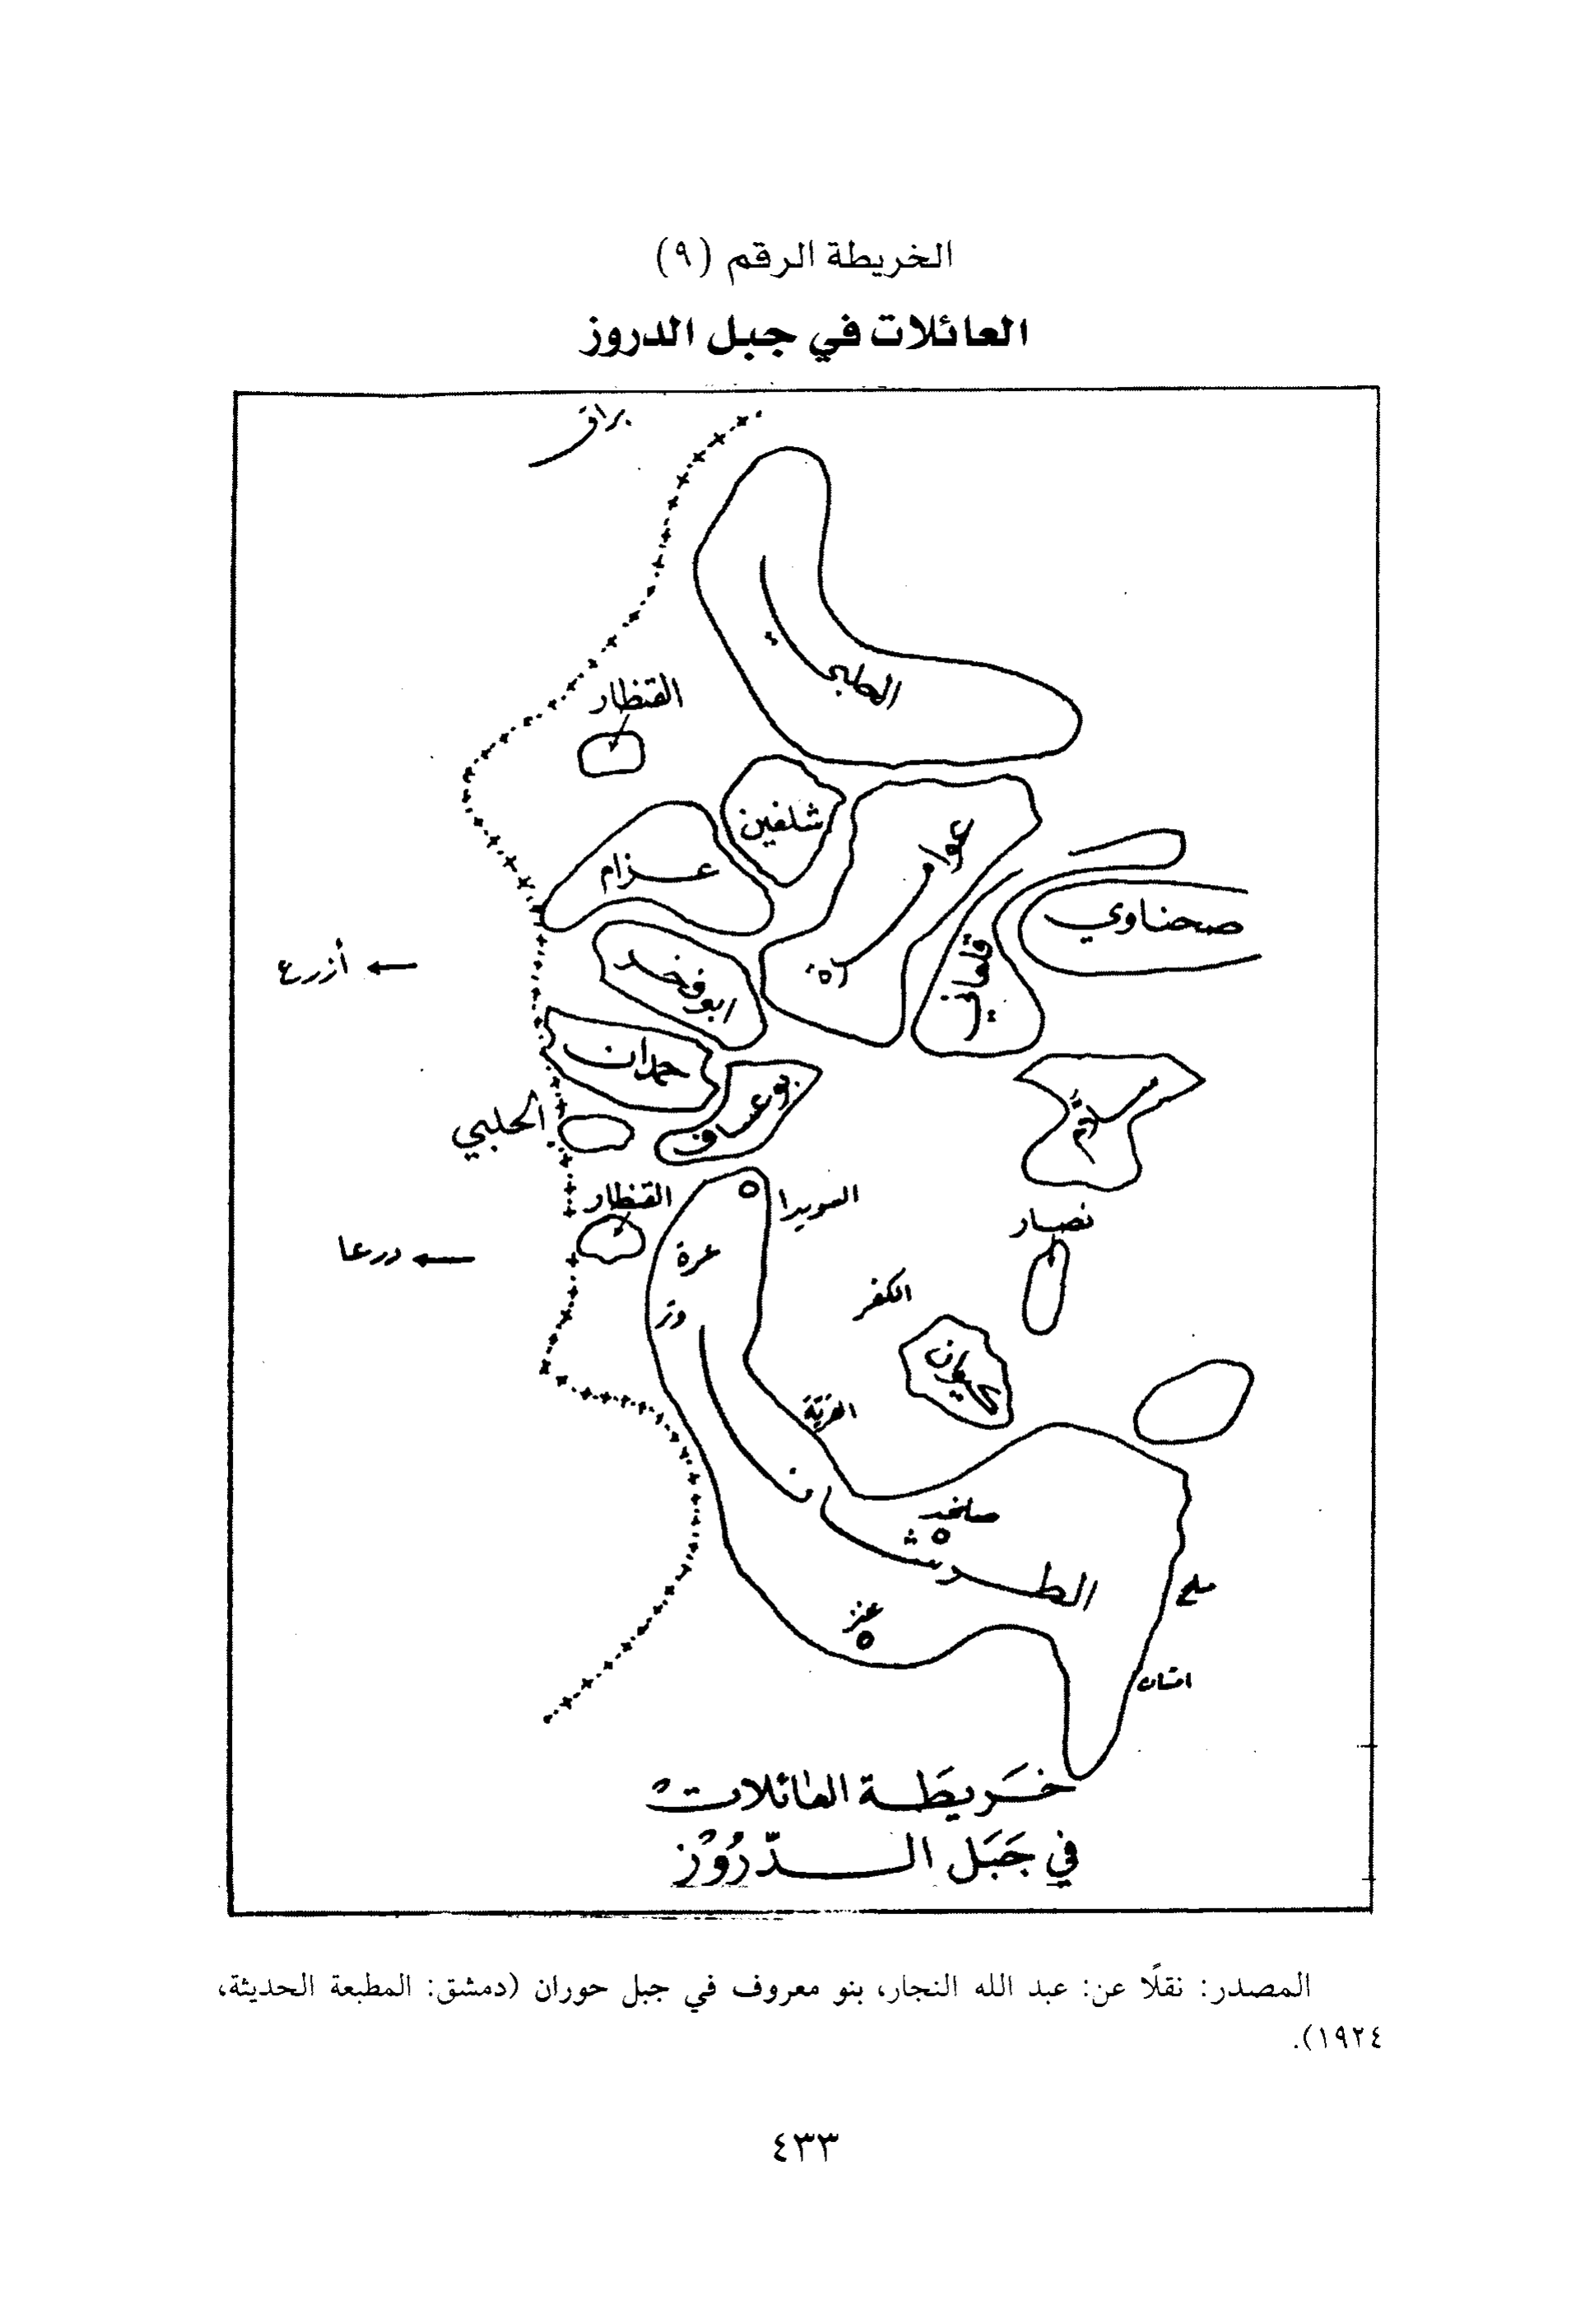 الخريطة الرقم (٩)
العائلات في جبل الدروز
براق
القنطار
شلغين
عزام
صحناوي
قلعاني
أزرع
ابو فخر
حمدان
بو عساف
الحلبي
القنطار
السويدا
نصار
درعا
عرة
الكفر
القريّة
صلخد
عنز
ملح
امتان
خَريطَة العائلات
في جَبَل الدّرُوْز
المصدر: نقلًا عن: عبد الله النجار، بنو معروف في جبل حوران (دمشق: المطبعة الحديثة،
١٩٢٤).
٤٣٣